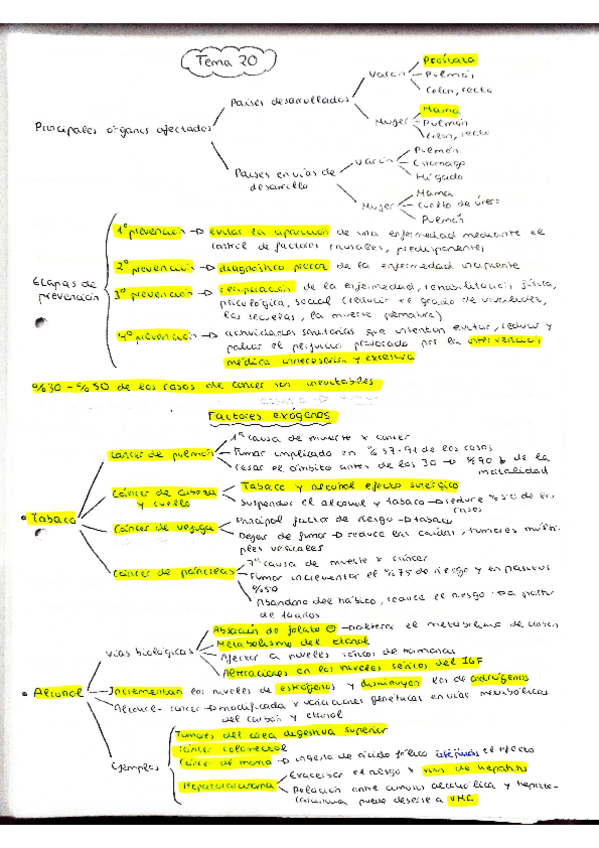 Tema 20
Principales órganos afectados
Países desarrollados
Varón
Próstata
Pulmón
Colon, recto
Mujer
Mama
Pulmón
Colon, recto
Países en vías de
desarrollo
Varón
Pulmón
Estómago
Hígado
Mujer
Mama
Cuello de útero
Pulmón
Etapas de
prevención
1º prevención → evitar la aparición de una enfermedad mediante el
control de factores causales, predisponentes
2º prevención → diagnóstico precoz de la enfermedad incipiente
3º prevención → recuperación de la enfermedad, rehabilitación física,
psicológica, social (reducir el grado de invalidez,
las secuelas, la muerte prematura)
4º prevención → actividades sanitarias que intentan evitar, reducir y
paliar el perjuicio provocado por la intervención
médica innecesaria y excesiva
%30 - %50 de los casos de cáncer son inevitables
Factores exógenos
• Tabaco
Cáncer de pulmón
1ª causa de muerte x cáncer
Fumar implicado en % 87-91 de los casos
Cesar el ámbito antes de los 30 → %90 ↓ de la
mortalidad
Cáncer de cabeza
y cuello
Tabaco y alcohol efecto sinérgico
Suspender el alcohol y tabaco → reduce
casos
Cáncer de vejiga
Principal factor de riesgo → tabaco
Dejar de fumar → reduce las tumores múlti-
ples vesicales
Cáncer de páncreas
7ª causa de muerte x cáncer
Fumar incrementar el %75 de riesgo y en pasivos
%50
Abandono del hábito, reduce el riesgo → a partir
de
• Alcohol
Vías biológicas
Absorción de folato → altera el metabolismo de
Metabolismo del etanol
Afectar a niveles séricos de hormonas
Alteraciones en los niveles séricos del IGF
Incrementan los niveles de estrógenos y disminuyen los de andrógenos
Alcohol - cáncer → modificada x variaciones genéticas en vías metabólicas
del carbón y etanol
Ejemplos
Tumores del área digestiva superior
Cáncer colorrectal
Cáncer de mama → ingesta de ácido fólico el efecto
Hepatocarcinoma
Exacerbar el riesgo x virus de hepatitis
Relación entre cirrosis alcohólica y hepato-
carcinoma puede deberse a VHC